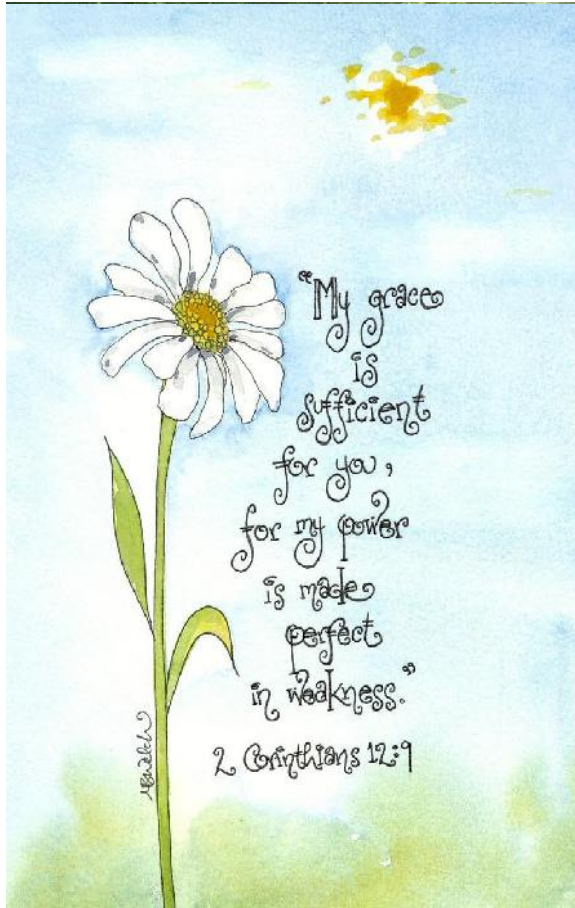 "My grace
is
sufficient
for you,
for my power
is made
perfect
in weakness."
2 Corinthians 12:9